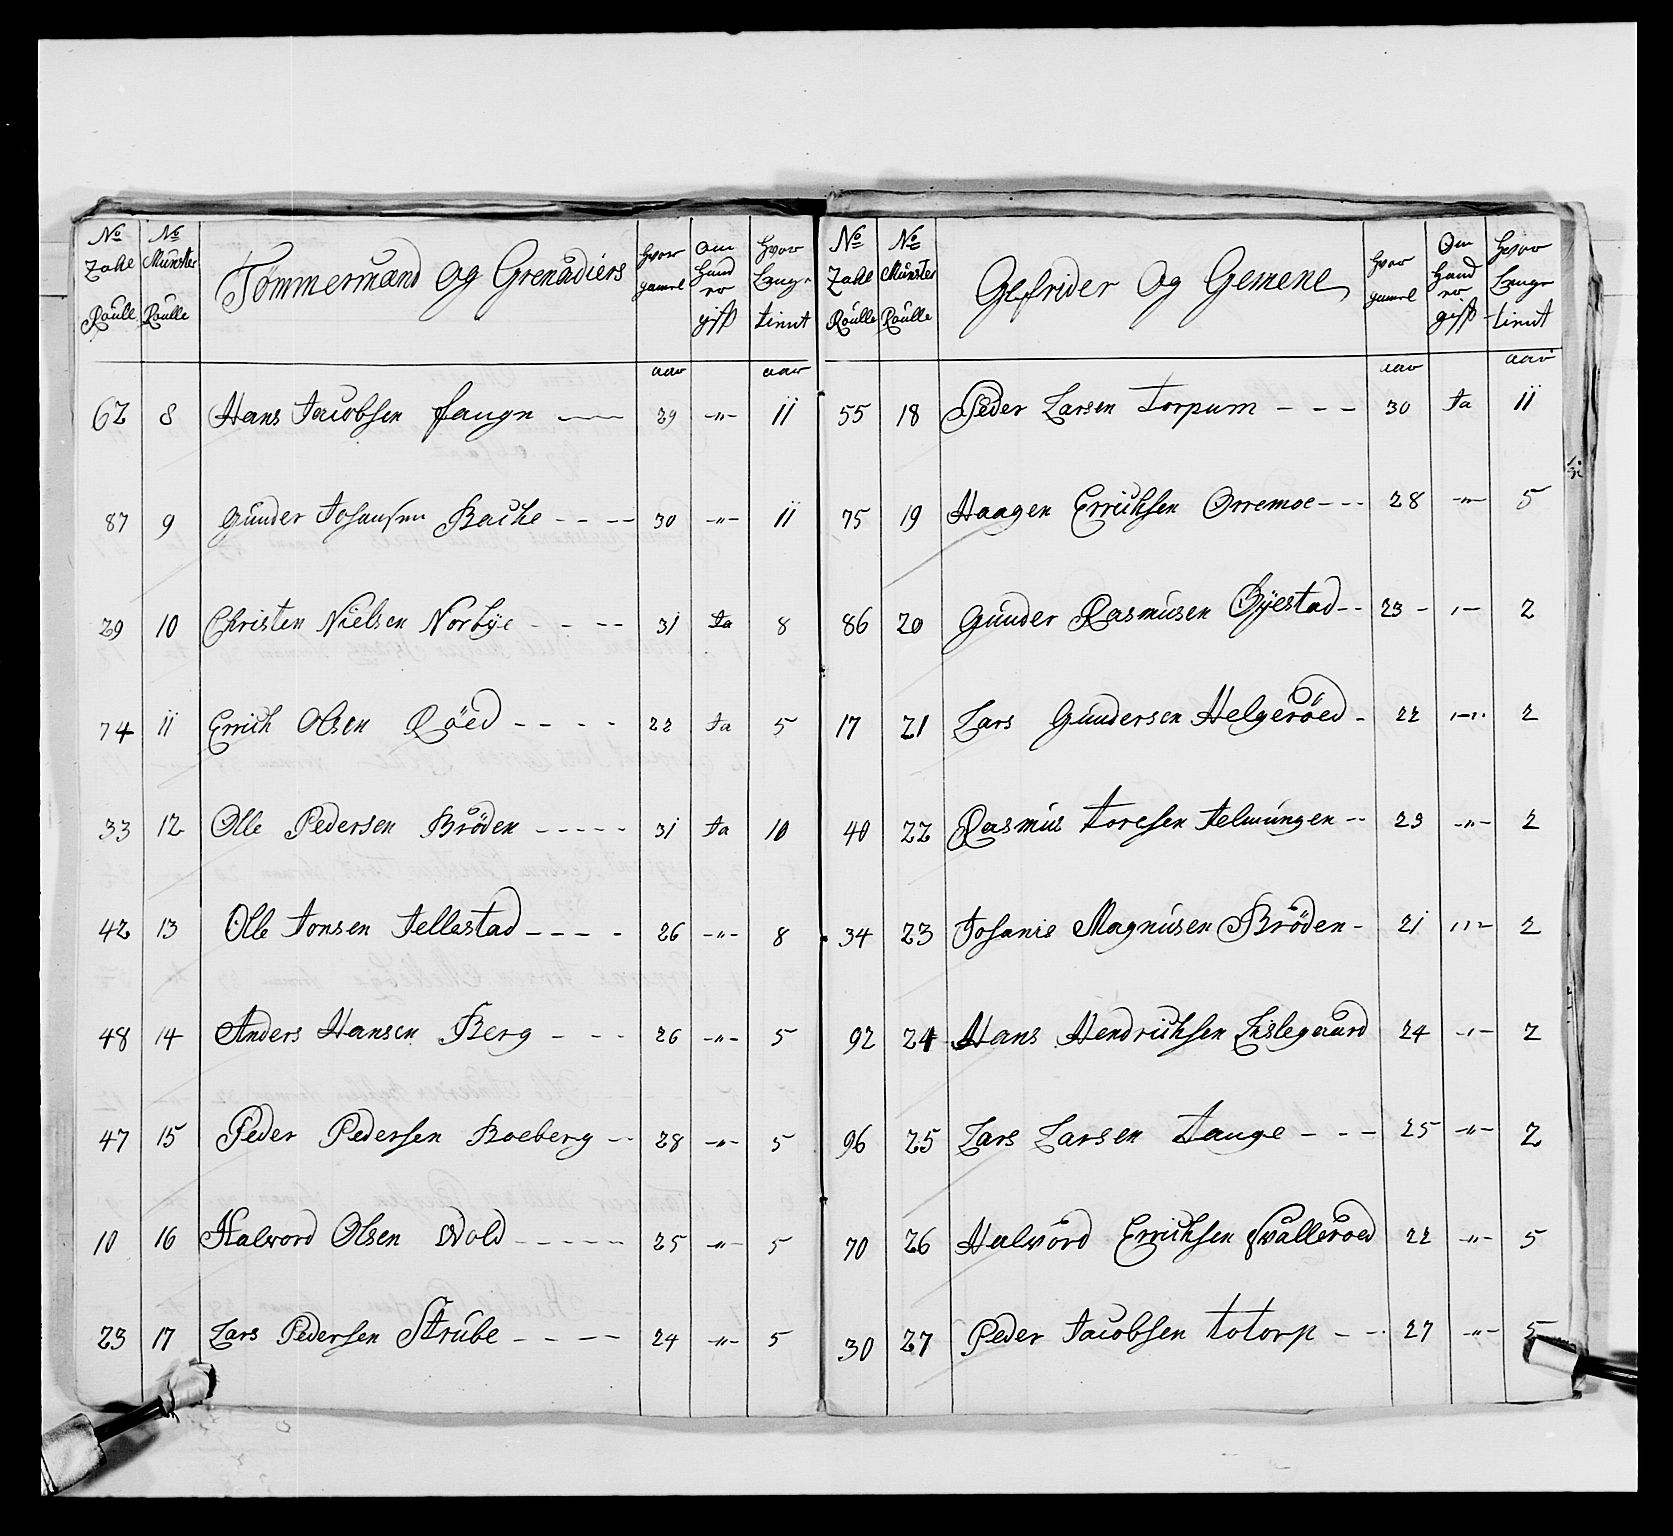 No Zahl Roulle | No Munster Roulle | Tømmermænd og Grenadiers | hvor gamel | Om hand er gift | hvor Lenge tient
aar | aar
62 8 Hans Jacobsen fange 29 -"- 11
87 9 Gunder Johansen Bache 30 -"- 11
29 10 Christen Nielsen Norbÿe 31 Ja 8
74 11 Errich Olsen Röed 22 Ja 5
33 12 Olle Pedersen Bröden 31 Ja 10
42 13 Olle Jonsen Jellestad 26 -"- 8
48 14 Anders Hansen Berg 26 -"- 5
47 15 Peder Pedersen Boeberg 28 -"- 5
10 16 Halvord Olsen Wold 25 -"- 5
23 17 Lars Pedersen Strube 24 -"- 5
No Zahl Roulle | No Munster Roulle | Gefrider og Gemene | hvor gamel | Om Hand er gift | hvor Lenge tient
aar | aar
55 18 Peder Larsen Torpum 30 Ja 11
75 19 Haagen Errichsen Orremoe 28 -"- 5
86 20 Gunder Rasmusen Bÿestad 23 -"- 2
17 21 Lars Gundersen Helgeröed 22 -"- 2
40 22 Rasmus Toresen 23 -"- 2
34 23 Johanis Magnusen Bröden 21 -"- 2
92 24 Hans Hendrichsen 24 -"- 2
96 25 Lars Larsen Tange 25 -"- 2
70 26 Halvord Errichsen 22 -"- 5
30 27 Peder Jacobsen Totorp 27 -"- 5